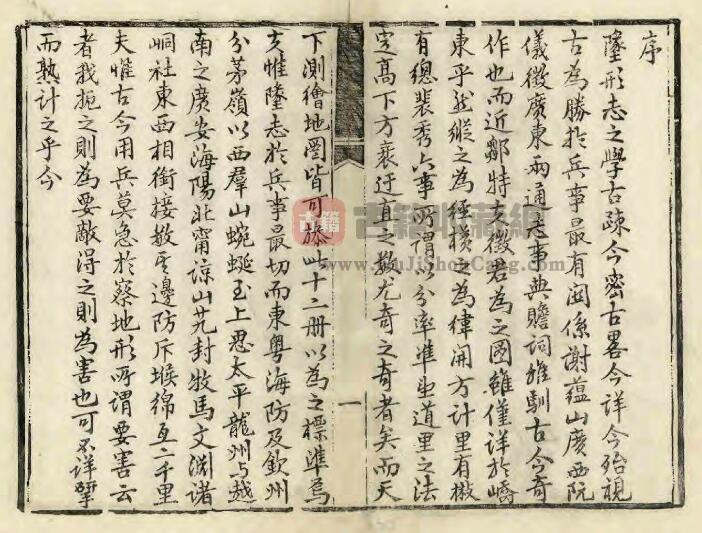 序
墬形志之學古疎今密古畧今詳今殆視
古為勝於兵事最有関係謝蘊山廣西阮
儀徵廣東兩通志事典贍詞雅馴古今奇
作也而近鄒特夫徵君為之圖雖僅詳於嶠
東乎然縱之為經橫之為緯開方計里有
有總裴秀六事所謂以分率準望道里之法
定高下方衺迂直之數尤奇之奇者矣而天
一
下測繪地圖皆可放此十二冊以為之標準焉
夫惟墬志於兵事最切而東粵海防及欽州
分茅嶺以西羣山蜿蜒至上思太平龍州与越
南之廣安海陽北甯諒山艽封牧馬文淵諸
峒社東西相銜接邊防斥堠綿亙二千里
夫惟古今用兵莫急於察地形所謂要害云
者我扼之則為要敵得之則為害也可不詳擘
而熟計之乎今
古籍
古籍收藏網
www.GuJiShouCang.com